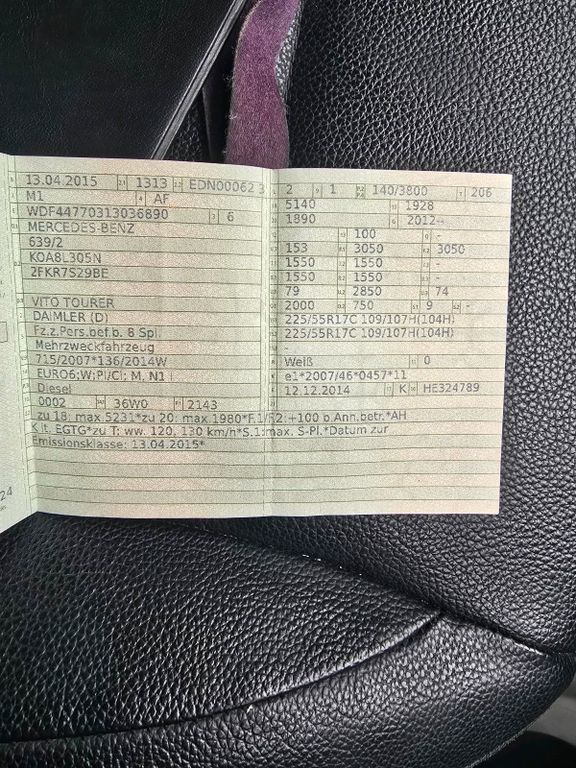 13.04.2015 1313 EDN00062 3
M1 AF
WDF44770313036890 6
MERCEDES-BENZ
639/2
KOA8L305N
2FKR7S29BE
VITO TOURER
DAIMLER (D)
Fz.z.Pers.bef.b. 8 Spl.
Mehrzweckfahrzeug
715/2007*136/2014W
EURO6;W;PI/CI; M, N1 I
Diesel
0002 36W0 2143
2 1 140/3800 206
5140 1928
1890 2012--
100 -
153 3050 3050
1550 1550 -
1550 1550 -
79 2850 74
2000 750 9 -
225/55R17C 109/107H(104H)
225/55R17C 109/107H(104H)
-
Weiß 0
e1*2007/46*0457*11
12.12.2014 K HE324789
zu 18: max 5231*zu 20: max.1980*F.1/F2: +100 b.Anh.betr.*AH
K lt. EGTG*zu T: ww. 120, 130 km/h*S.1:max. S-Pl.*Datum zur
Emissionsklasse: 13.04.2015*
24